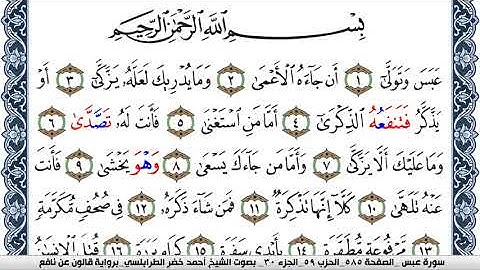 بِسْمِ اللَّهِ الرَّحْمَٰنِ الرَّحِيمِ
عَبَسَ وَتَوَلَّىٰ ١ أَن جَآءَهُ الْأَعْمَىٰ ٢ وَمَا يُدْرِيكَ لَعَلَّهُۥ يَزَّكَّىٰ ٣ أَوْ
يَذَّكَّرُ فَتَنفَعُهُ الذِّكْرَىٰ ٤ أَمَّا مَنِ اسْتَغْنَىٰ ٥ فَأَنتَ لَهُۥ تَصَّدَّىٰ ٦
وَمَا عَلَيْكَ أَلَّا يَزَّكَّىٰ ٧ وَأَمَّا مَن جَآءَكَ يَسْعَىٰ ٨ وَهْوَ يَخْشَىٰ ٩ فَأَنتَ
عَنْهُ تَلَهَّىٰ ١٠ كَلَّآ إِنَّهَا تَذْكِرَةٌ ١١ فَمَن شَآءَ ذَكَرَهُۥ ١٢ فِي صُحُفٍ مُّكَرَّمَةٍ
١٣ مَّرْفُوعَةٍ مُّطَهَّرَةٍ ١٤ بِأَيْدِي سَفَرَةٍ ١٥ كِرَامٍ بَرَرَةٍ ١٦ قُتِلَ الْإِنسَٰنُ
سورة عبس _ الصفحة ٥٨٥_ الحزب ٥٩_ الجزء ٣٠_ بصوت الشيخ أحمد خضر الطرابلسي _ برواية قالون عن نافع